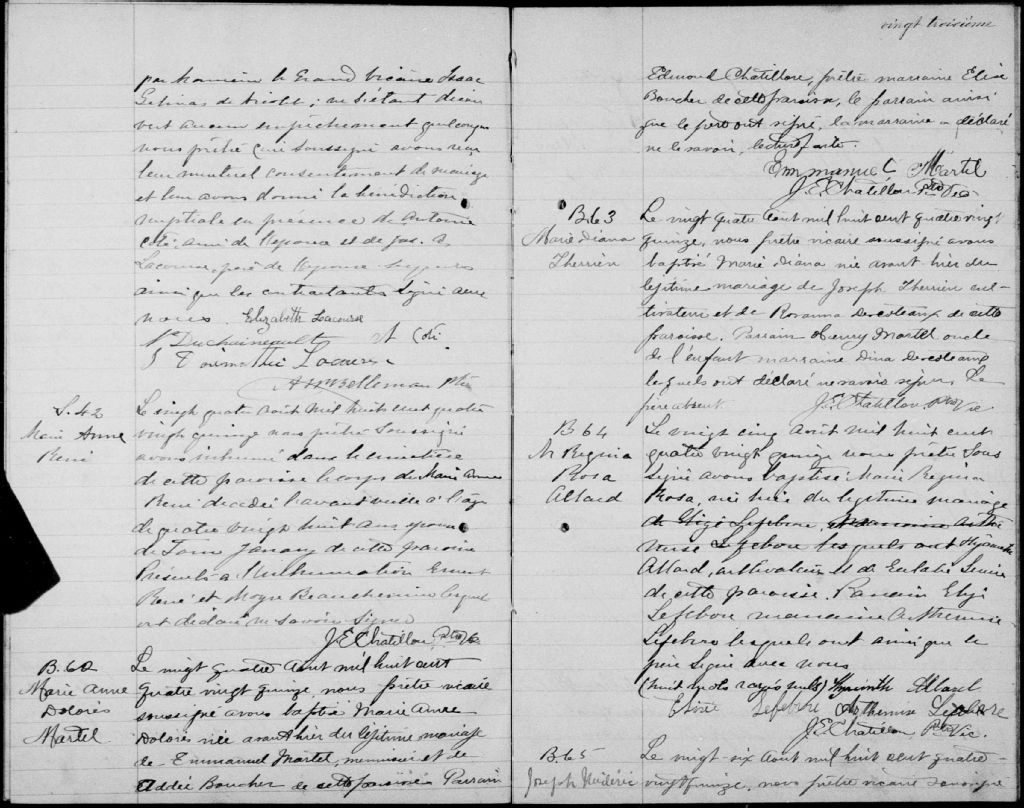 par Monsieur le Grand Vicaire Isaac
Gelinas de Nicolet; ne s'étant décou
vert aucun empêchement quelconque
nous prêtre curé soussigné avons reçu
leur mutuel consentement de mariage
et leur avons donné la bénédiction
nuptiale en présence de Antoine
Côté ami de l'époux et de Jos. T.
Lacourse, père de l'épouse
ainsi que les contractants signé avec
nous. Elizabeth Lacourse
P. Duchaineault A Côté
J Toimothé Lacourse
Ptre
S. 42
Marie Anne
René
Le vingt quatre août mil huit cent quatre
vingt quinze nous prêtre soussigné
avons inhumé dans le cimetière
de cette paroisse le corps de Marie Anne
René décédée l'avant veille à l'âge
de quatre vingt huit ans épouse
de cette paroisse
Présents à l'inhumation Ernest
René et Moyse Beauchemin lesquels
ont déclaré ne savoir signer
J.E. Chatillon Ptre Vic
B. 62
Marie Anne
Dolorès
Martel
Le vingt quatre Aout mil huit cent
quatre vingt quinze, nous prêtre vicaire
soussigné avons baptisé Marie Anne
Dolorès née avant hier du légitime mariage
de Emmanuel Martel, menuisier et de
Addée Boucher de cette paroisse Parrain
vingt troisième
Edmond Chatillon, prêtre marraine Elise
Boucher de cette paroisse, le parrain ainsi
que le père ont signé, la marraine a déclaré
ne le savoir, lecture faite.
Emmanuel Martel
J.E. Chatillon Ptre Vic
B. 63
Marie Diana
Therrien
Le vingt quatre Aout mil huit cent quatre vingt
quinze, nous prêtre vicaire soussigné avons
baptisé Marie Diana née avant hier du
légitime mariage de Joseph Therrien cul-
tivateur et de Rosanna Descoteaux de cette
paroisse. Parrain Henry Martel oncle
de l'enfant marraine Dina Descoteaux
lesquels ont déclaré ne savoir signer. Le
père absent. J.E. Chatillon Ptre Vic
B 64
M Regina
Rosa
Allard
Le vingt cinq Août mil huit cent
quatre vingt quinze nous prêtre sous
signé avons baptisé Marie Regina
Rosa, née hier du légitime mariage
de Elizé Lefebvre, et marraine Arthé
mise Lefebvre lesquels ont Hyacinthe
Allard, cultivateur et de Eulalie
de cette paroisse. Parrain Elzé
Lefebvre marraine Arthémise
Lefebvre lesquels ont ainsi que le
père signé avec nous
(huit mots rayés nuls) Hyacinth Allard
Elizée Lefebvre Arthemise Lefebvre
J.E. Chatillon Ptre Vic.
B. 65
Joseph Médéric
Le vingt-six Aout mil huit cent quatre-
vingt quinze, nous prêtre vicaire soussigné